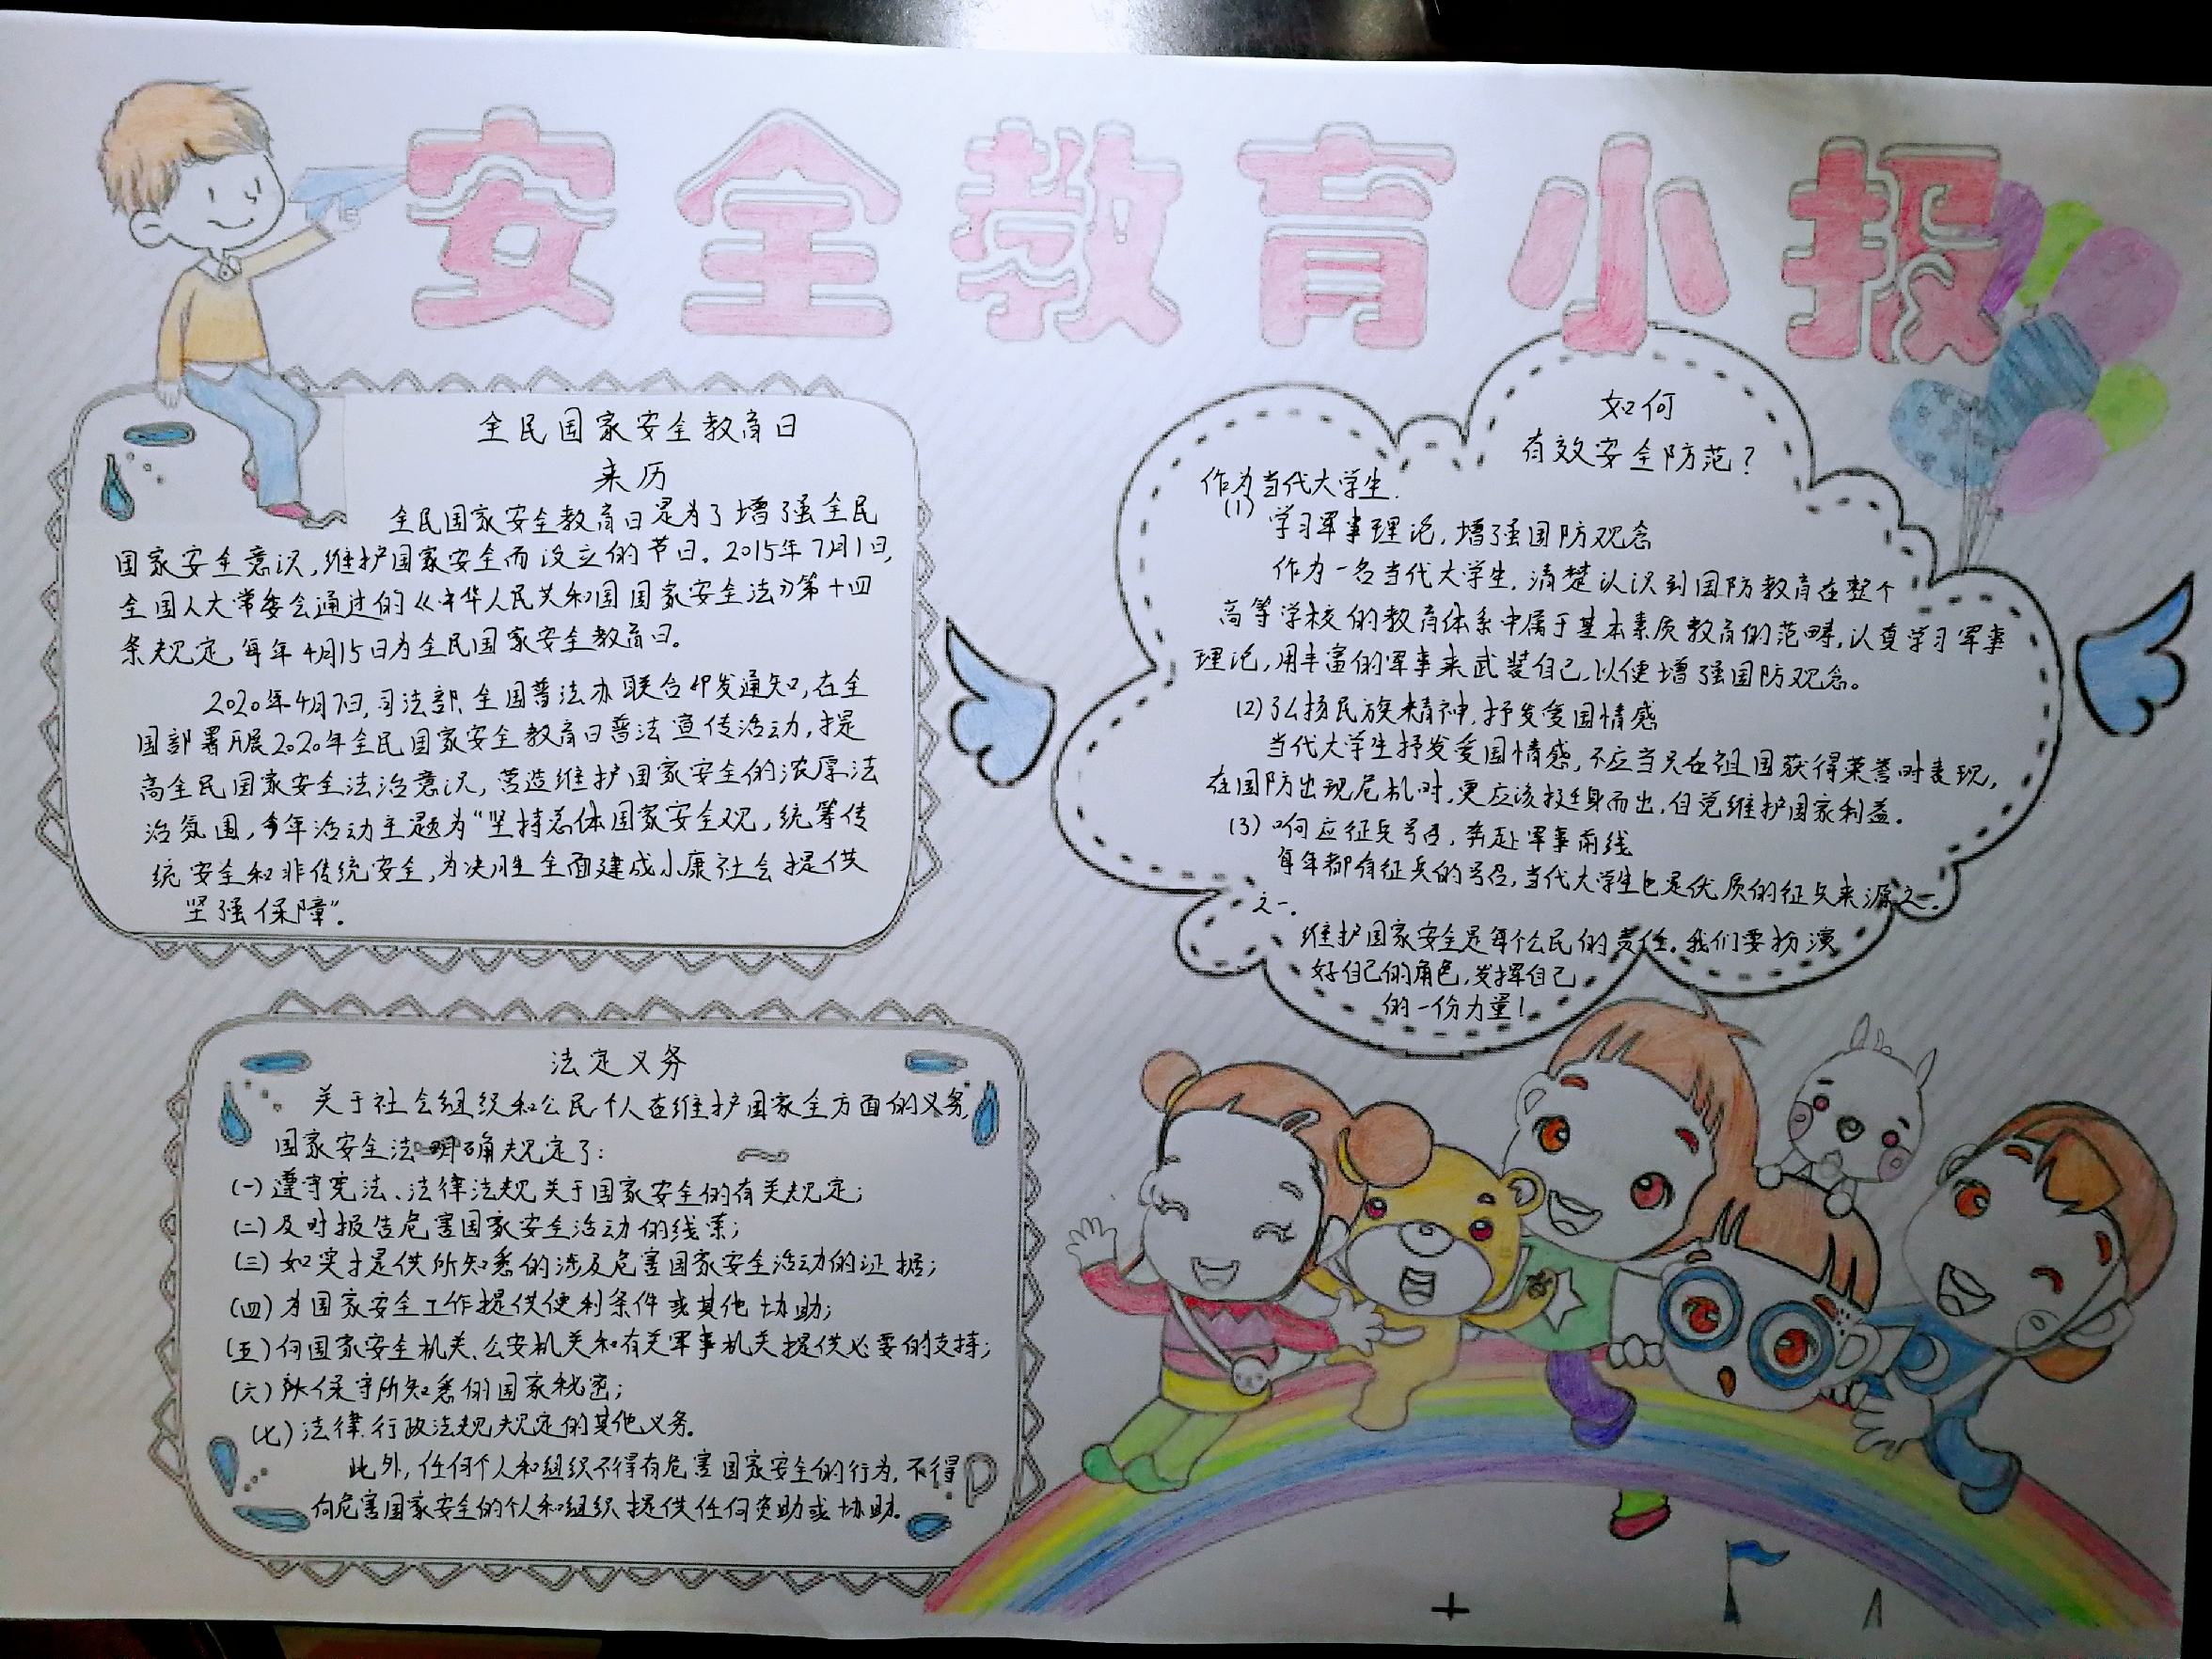 安全教育小报
全民国家安全教育日
来历
全民国家安全教育日是为了增强全民
国家安全意识,维护国家安全而设立的节日。2015年7月1日,
全国人大常委会通过的《中华人民共和国国家安全法》第十四
条规定,每年4月15日为全民国家安全教育日。
2020年4月7日,司法部、全国普法办联合印发通知,在全
国部署开展2020年全民国家安全教育日普法宣传活动,提
高全民国家安全法治意识,营造维护国家安全的浓厚法
治氛围,今年活动主题为“坚持总体国家安全观,统筹传
统安全和非传统安全,为决胜全面建成小康社会提供
坚强保障”。
法定义务
关于社会组织和公民个人在维护国家全方面的义务,
国家安全法明确规定了:
(一)遵守宪法、法律法规关于国家安全的有关规定;
(二)及时报告危害国家安全活动的线索;
(三)如实提供所知悉的涉及危害国家安全活动的证据;
(四)为国家安全工作提供便利条件或其他协助;
(五)向国家安全机关、公安机关和有关军事机关提供必要的支持;
(六)保守所知悉的国家秘密;
(七)法律、行政法规规定的其他义务。
此外,任何个人和组织不得有危害国家安全的行为,不得
向危害国家安全的个人和组织提供任何资助或协助。
如何
有效安全防范?
作为当代大学生.
(1) 学习军事理论,增强国防观念
作为一名当代大学生,清楚认识到国防教育在整个
高等学校的教育体系中属于基本素质教育的范畴,认真学习军事
理论,用丰富的军事来武装自己,以便增强国防观念。
(2)弘扬民族精神,抒发爱国情感
当代大学生抒发爱国情感,不应当只在祖国获得荣誉时表现,
在国防出现危机时,更应该挺身而出,自觉维护国家利益。
(3)响应征兵号召,奔赴军事前线
每年都有征兵的号召,当代大学生也是优质的征兵来源之一.
之一.
维护国家安全是每个公民的责任。我们要扮演
好自己的角色,发挥自己
的一份力量!